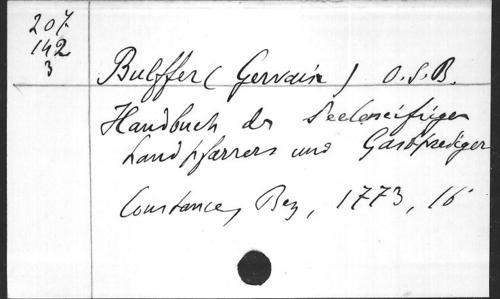 207
142
3
Bulffer (Gervais) O.S.B.
Handbuch des Seeleneifrigen
Landpfarrers und Gastprediger
Constance, Bez, 1773, 16°